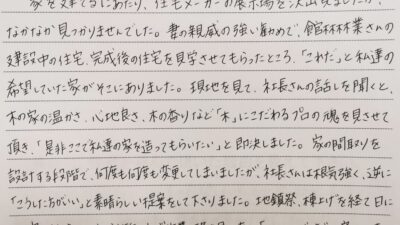 家を建てるにあたり、住宅メーカーの展示場を沢山見ましたが、
なかなか見つかりませんでした。妻の親戚の強い勧めで、館林林業さんの
建設中の住宅、完成後の住宅を見学させてもらったところ、「これだ」と私達の
希望していた家がそこにありました。現地を見て、社長さんの話しを聞くと、
木の家の温かさ、心地良さ、木の香りなど「木」にこだわるプロの魂を見させて
頂き、「是非ここで私達の家を造ってもらいたい」と即決しました。家の間取りを
設計する段階で、何度も何度も変更してしまいましたが、社長さんは根気強く、逆に
「こうした方がいい」と素晴らしい提案をして下さりました。地鎮祭、棟上げを経て日に